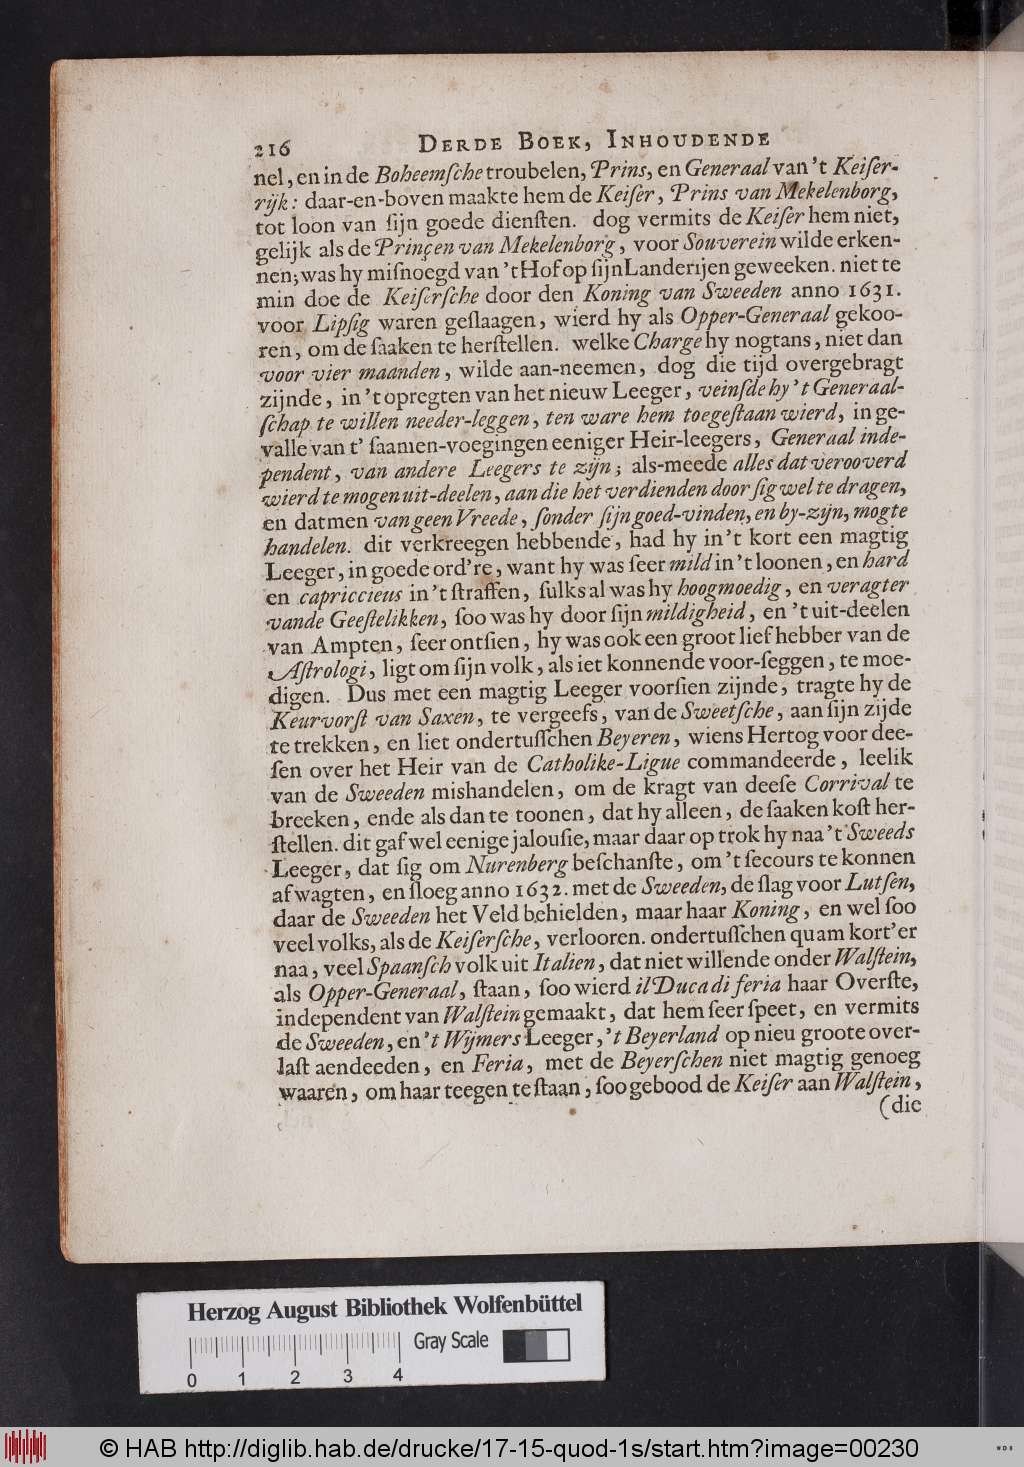 216 DERDE BOEK, INHOUDENDE
nel, en in de Boheemſche troubelen, Prins, en Generaal van 't Keiſer-
rijk: daar-en-boven maakte hem de Keiſer, Prins van Mekelenborg,
tot loon van ſijn goede dienſten. dog vermits de Keiſer hem niet,
gelijk als de Prinçen van Mekelenborg, voor Souverein wilde erken-
nen; was hy miſnoegd van 't Hof op ſijn Landerijen geweeken. niet te
min doe de Keiſerſche door den Koning van Sweeden anno 1631.
voor Lipſig waren geſlaagen, wierd hy als Opper-Generaal gekoo-
ren, om de ſaaken te herſtellen. welke Charge hy nogtans, niet dan
voor vier maanden, wilde aan-neemen, dog die tijd overgebragt
zijnde, in 't opregten van het nieuw Leeger, veinſde hy 't Generaal-
ſchap te willen needer-leggen, ten ware hem toegeſtaan wierd, in ge-
valle van t' ſaamen-voegingen eeniger Heir-leegers, Generaal inde-
pendent, van andere Leegers te zijn; als-meede alles dat verooverd
wierd te mogen uit-deelen, aan die het verdienden door ſig wel te dragen,
en datmen van geen Vreede, ſonder ſijn goed-vinden, en by-zijn, mogte
handelen. dit verkreegen hebbende, had hy in't kort een magtig
Leeger, in goede ord're, want hy was ſeer mild in't loonen, en hard
en capriccieus in't ſtraffen, ſulks al was hy hoogmoedig, en veragter
vande Geeſtelikken, ſoo was hy door ſijn mildigheid, en 't uit-deelen
van Ampten, ſeer ontſien, hy was ook een groot lief hebber van de
Aſtrologi, ligt om ſijn volk, als iet konnende voor-ſeggen, te moe-
digen. Dus met een magtig Leeger voorſien zijnde, tragte hy de
Keurvorſt van Saxen, te vergeefs, van de Sweetſche, aan ſijn zijde
te trekken, en liet ondertuſſchen Beyeren, wiens Hertog voor dee-
ſen over het Heir van de Catholike-Ligue commandeerde, leelik
van de Sweeden mishandelen, om de kragt van deeſe Corrival te
breeken, ende als dan te toonen, dat hy alleen, de ſaaken koſt her-
ſtellen. dit gaf wel eenige jalouſie, maar daar op trok hy naa 't Sweeds
Leeger, dat ſig om Nurenberg beſchanſte, om 't ſecours te konnen
afwagten, en ſloeg anno 1632. met de Sweeden, de ſlag voor Lutſen,
daar de Sweeden het Veld behielden, maar haar Koning, en wel ſoo
veel volks, als de Keiſerſche, verlooren. ondertuſſchen quam kort'er
naa, veel Spaanſch volk uit Italien, dat niet willende onder Walſtein,
als Opper-Generaal, ſtaan, ſoo wierd il Duca di feria haar Overſte,
independent van Walſtein gemaakt, dat hem ſeer ſpeet, en vermits
de Sweeden, en 't Wijmers Leeger, 't Beyerland op nieu groote over-
laſt aendeeden, en Feria, met de Beyerſchen niet magtig genoeg
waaren, om haar teegen te ſtaan, ſoo gebood de Keiſer aan Walſtein,
(die
Herzog August Bibliothek Wolfenbüttel
Gray Scale
0 1 2 3 4
© HAB http://diglib.hab.de/drucke/17-15-quod-1s/start.htm?image=00230